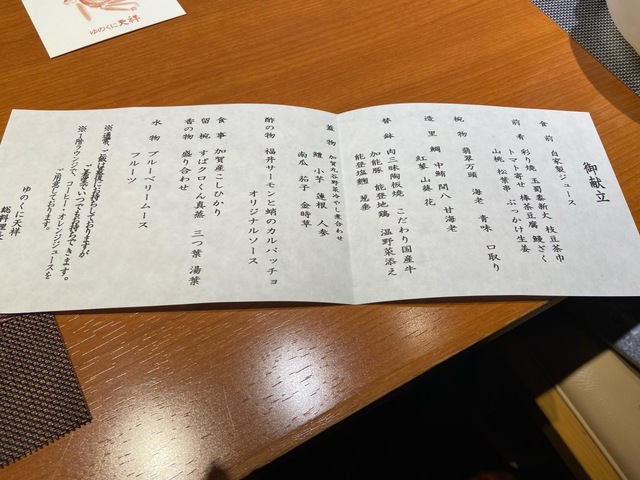 御献立
食前 自家製ジュース
前肴 彩り焼 玉蜀黍新丈 枝豆茶巾
トマト寄せ 棒茶豆腐 鰻ざく
山桃 松葉串 ぶっかけ生姜
椀物 翡翠万頭 海老 青味 口取り
造里 鯛 中鯖 間八 甘海老
紅蓼 山葵 花
替鉢 肉三昧陶板焼 こだわり国産牛
加能豚 能登地鶏 温野菜添え
能登塩麹 葱垂
蓋物 加賀丸谷野菜冷やし煮合わせ
鱧 小芋 蓮根 人参
南瓜 茄子 金時草
酢の物 福井サーモンと蛸のカルパッチョ
オリジナルソース
食事 加賀産こしひかり
留椀 すばクロくん真蒸 三つ葉 湯葉
香の物 盛り合わせ
水物 ブルーベリームース
フルーツ
※通常、ご飯は最後にお持ちしておりますが
ご希望でいつでもお持ちできます。
※1階ラウンジで、コーヒー・オレンジジュースを
ご用意しております。
ゆのくに天祥
総料理長
ゆのくに天祥